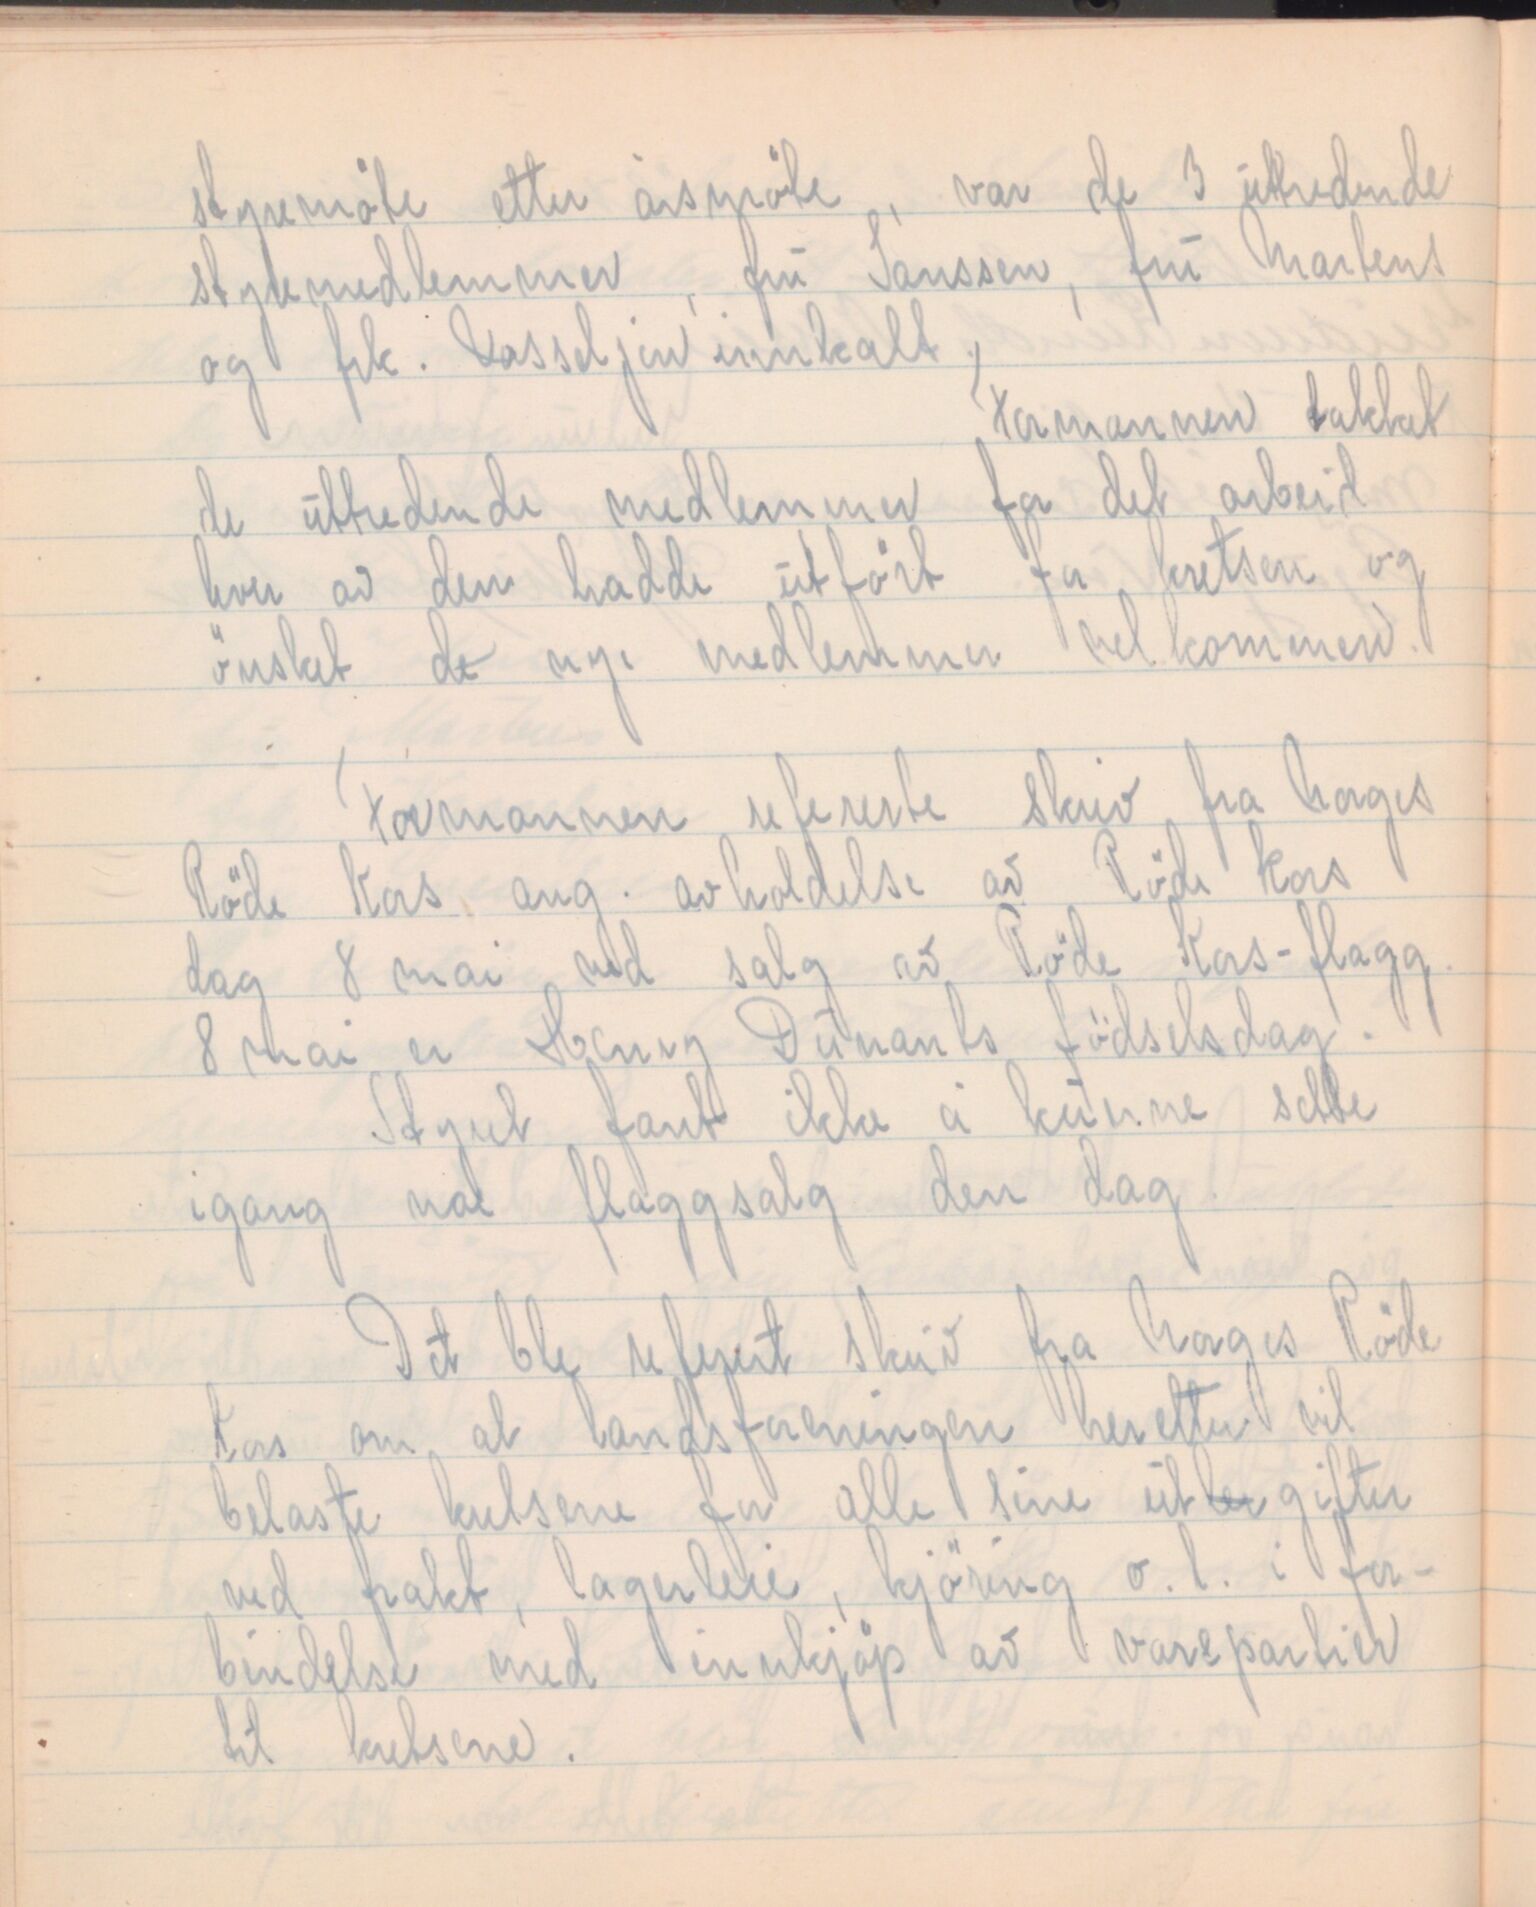 styremöte etter årsmöte, var de 3 uttredende
styremedlemmer, fru Janssen, fru Martens
og frk. Vasseljen innkalt.
Formannen takket
de uttredende medlemmer for det arbeid
hver av dem hadde utfört for kretsen og
önsket de nye medlemmer velkommen.
Formannen refererte skriv fra Norges
Röde Kors ang. avholdelse av Röde Kors
dag 8 mai ved salg av Röde Kors-flagg.
8 mai er Henry Dunants födselsdag.
Styret fant ikke å kunne sette
igang noe flaggsalg den dag.
Det ble referert skriv fra Norges Röde
Kors om at landsforeningen heretter vil
belaste kretsene for alle sine utgifter
ved frakt, lagerleie, kjöring o.l. i for-
bindelse med innkjöp av varepartier
til kretsene.